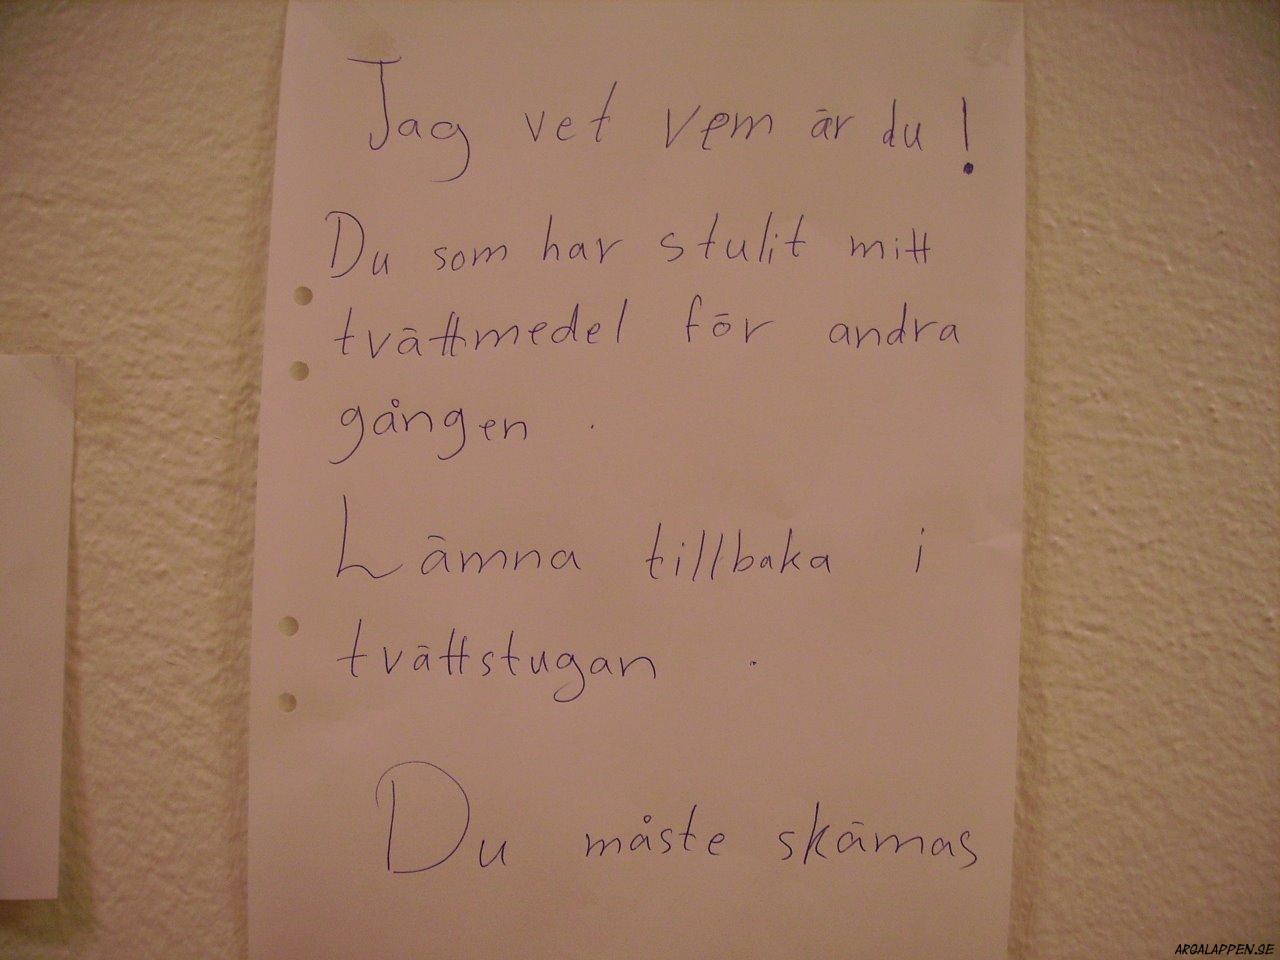 Jag vet vem är du!
Du som har stulit mitt
tvättmedel för andra
gången.
Lämna tillbaka i
tvättstugan.
Du måste skämas
ARGALAPPEN.SE